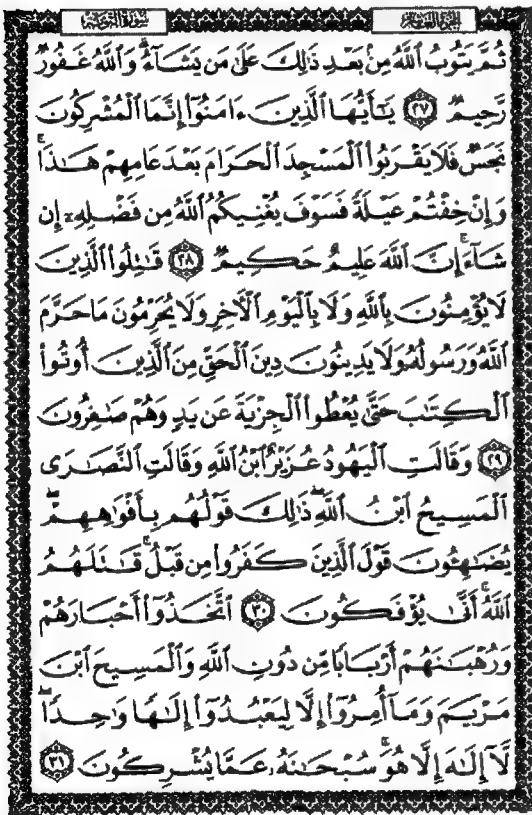 سُورَةُ التَّوْبَةِ
الجزء العاشر
ثُمَّ يَتُوبُ ٱللَّهُ مِنۢ بَعْدِ ذَٰلِكَ عَلَىٰ مَن يَشَآءُ ۗ وَٱللَّهُ غَفُورٌ
رَّحِيمٌ ٢٧ يَـٰٓأَيُّهَا ٱلَّذِينَ ءَامَنُوٓا۟ إِنَّمَا ٱلْمُشْرِكُونَ
نَجَسٌ فَلَا يَقْرَبُوا۟ ٱلْمَسْجِدَ ٱلْحَرَامَ بَعْدَ عَامِهِمْ هَـٰذَا ۚ
وَإِنْ خِفْتُمْ عَيْلَةً فَسَوْفَ يُغْنِيكُمُ ٱللَّهُ مِن فَضْلِهِۦٓ إِن
شَآءَ ۚ إِنَّ ٱللَّهَ عَلِيمٌ حَكِيمٌ ٢٨ قَـٰتِلُوا۟ ٱلَّذِينَ
لَا يُؤْمِنُونَ بِٱللَّهِ وَلَا بِٱلْيَوْمِ ٱلْـَٔاخِرِ وَلَا يُحَرِّمُونَ مَا حَرَّمَ
ٱللَّهُ وَرَسُولُهُۥ وَلَا يَدِينُونَ دِينَ ٱلْحَقِّ مِنَ ٱلَّذِينَ أُوتُوا۟
ٱلْكِتَـٰبَ حَتَّىٰ يُعْطُوا۟ ٱلْجِزْيَةَ عَن يَدٍ وَهُمْ صَـٰغِرُونَ
٢٩ وَقَالَتِ ٱلْيَهُودُ عُزَيْرٌ ٱبْنُ ٱللَّهِ وَقَالَتِ ٱلنَّصَـٰرَى
ٱلْمَسِيحُ ٱبْنُ ٱللَّهِ ۖ ذَٰلِكَ قَوْلُهُم بِأَفْوَٰهِهِمْ ۖ
يُضَـٰهِـُٔونَ قَوْلَ ٱلَّذِينَ كَفَرُوا۟ مِن قَبْلُ ۚ قَـٰتَلَهُمُ
ٱللَّهُ ۚ أَنَّىٰ يُؤْفَكُونَ ٣٠ ٱتَّخَذُوٓا۟ أَحْبَارَهُمْ
وَرُهْبَـٰنَهُمْ أَرْبَابًا مِّن دُونِ ٱللَّهِ وَٱلْمَسِيحَ ٱبْنَ
مَرْيَمَ وَمَآ أُمِرُوٓا۟ إِلَّا لِيَعْبُدُوٓا۟ إِلَـٰهًا وَٰحِدًا ۖ
لَّآ إِلَـٰهَ إِلَّا هُوَ ۚ سُبْحَـٰنَهُۥ عَمَّا يُشْرِكُونَ ٣١